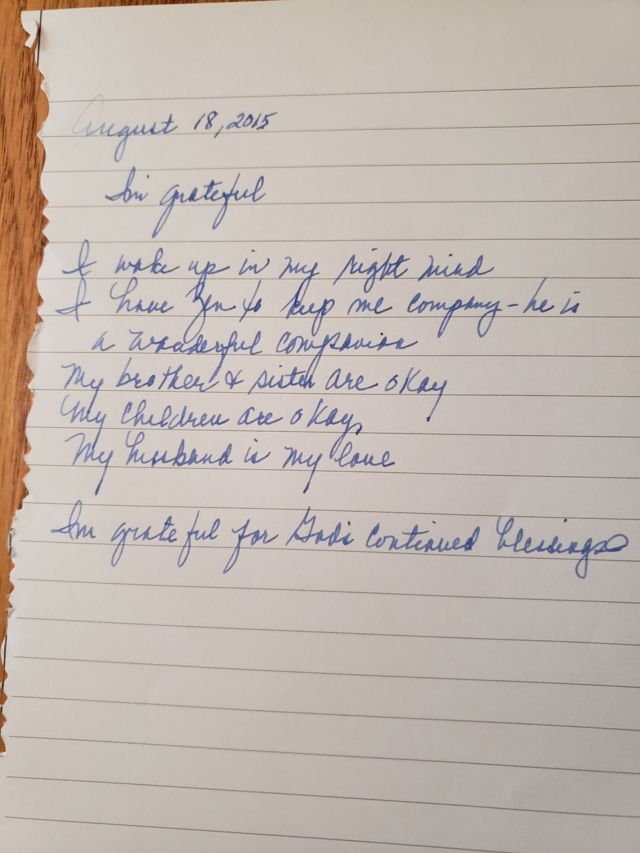 August 18, 2015
I'm grateful
I wake up in my right mind
I have Zen to keep me company - he is
a wonderful companion
My brother & sister are okay
My children are okay,
My husband is my love
I'm grateful for God's continued blessings